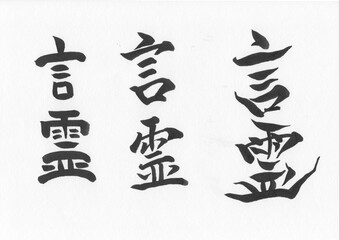 言霊
言霊
言霊